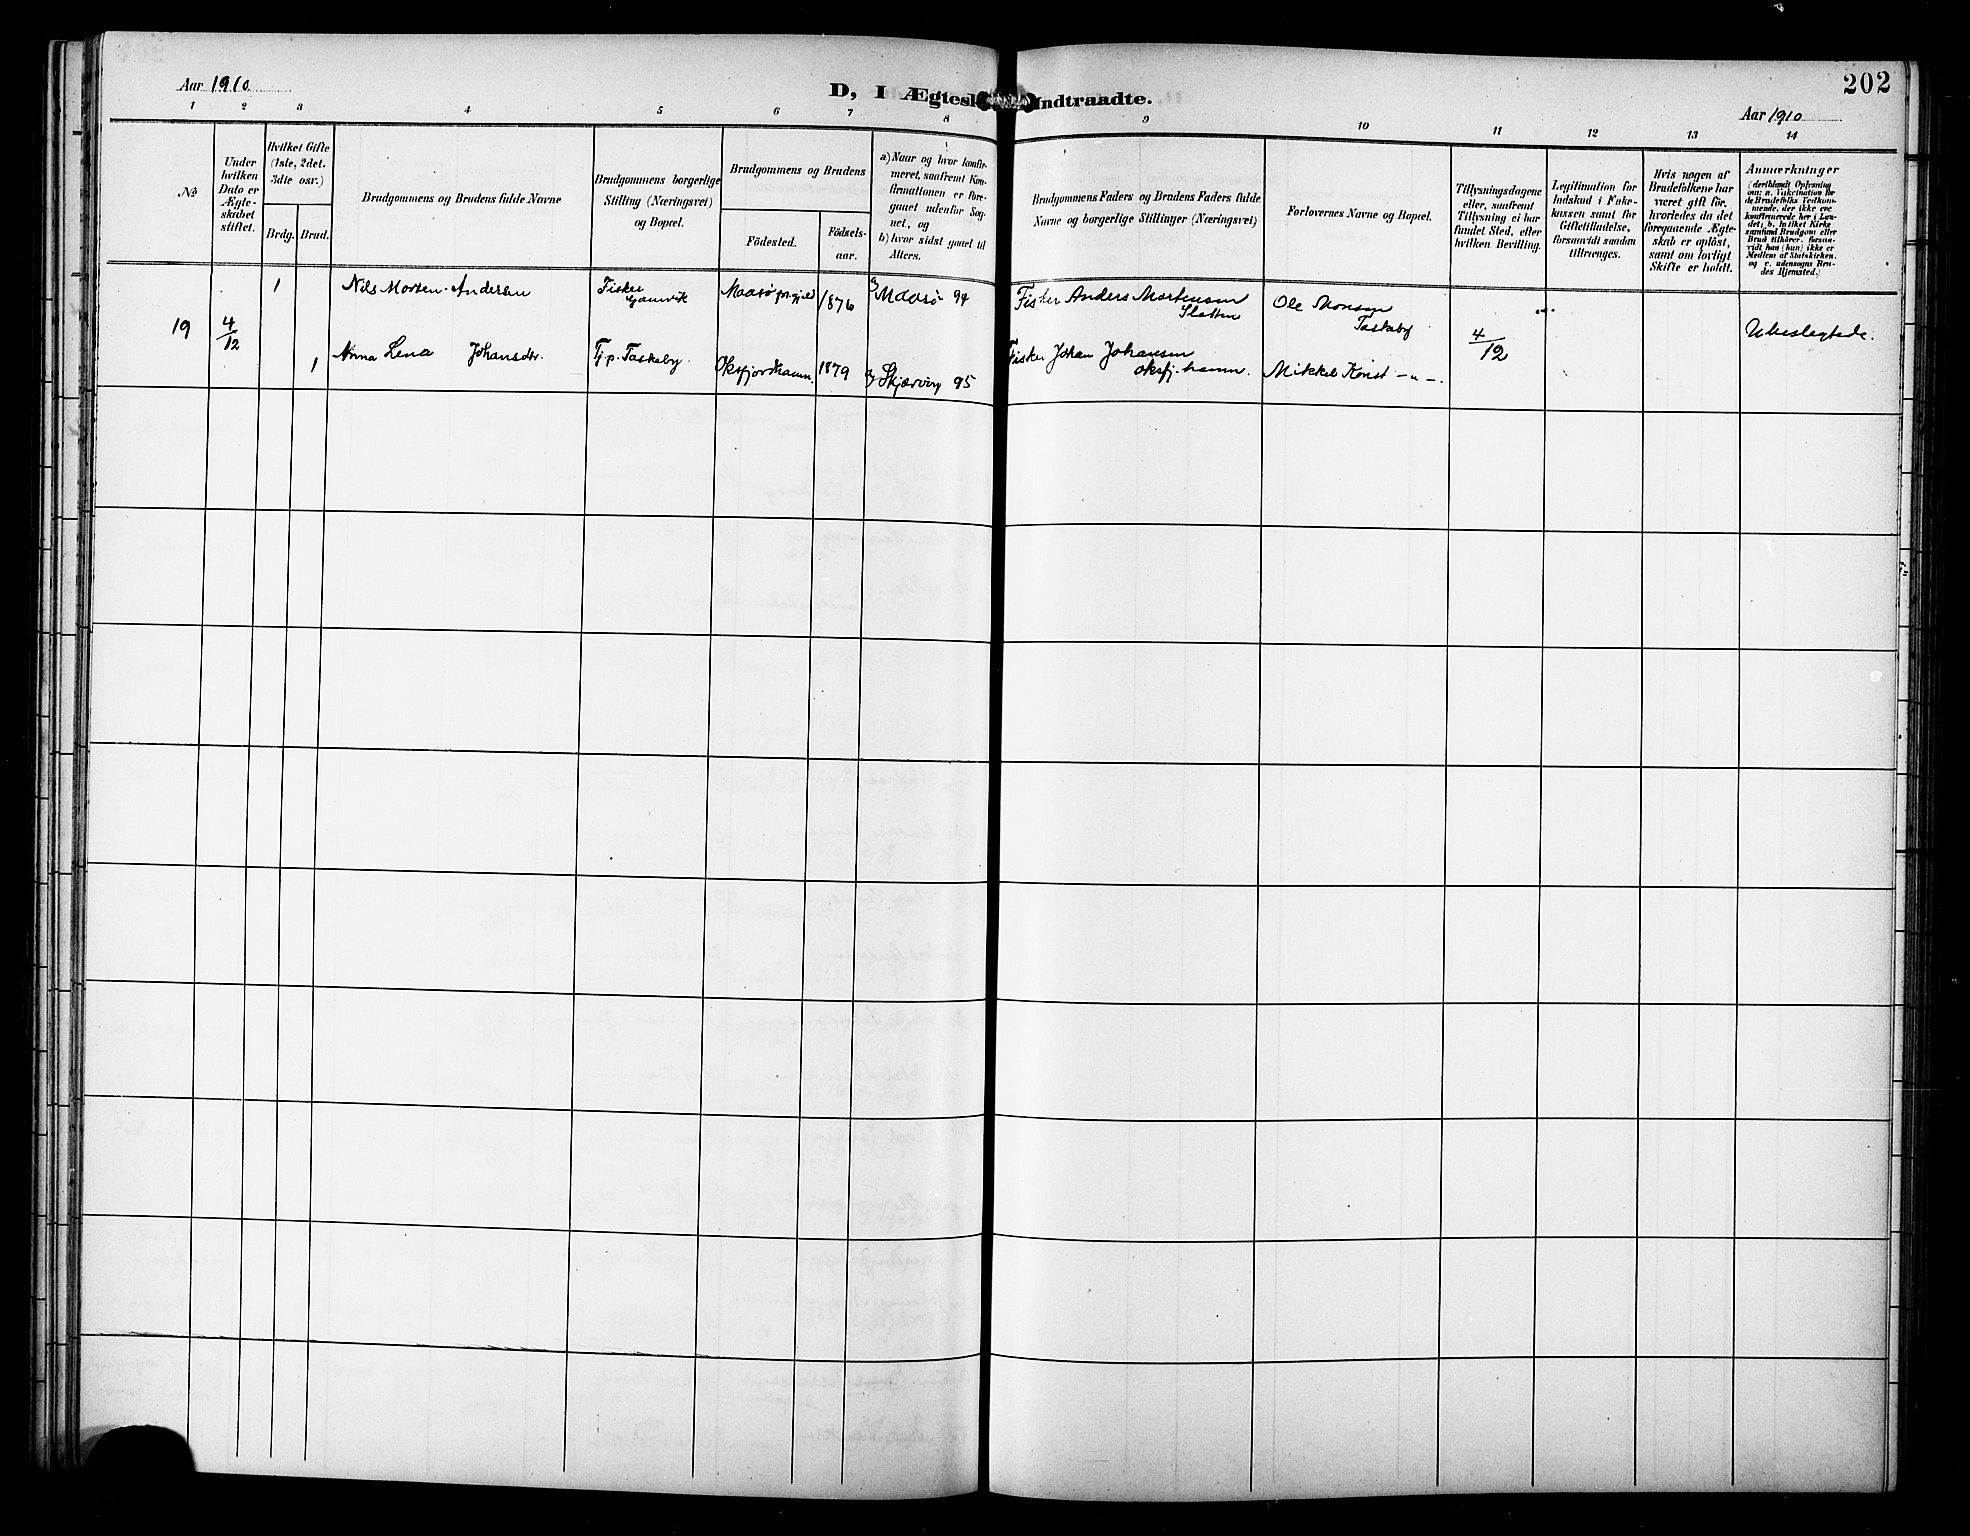 Aar 1910
D, I Ægtesk Indtraadte.
202
Aar 1910
1 2 3 4 5 6 7 8 9 10 11 12 13 14
No
Under
hvilken
Dato er
Ægte-
skabet
stiftet.
Hvilket Gifte
(1ste, 2det.
3die osv.)
Brdg.
Brud.
Brudgommens og Brudens fulde Navne
Brudgommens borgerlige
Stilling (Næringsvei)
og Bopæl.
Brudgommens og Brudens
Födested.
Födsels-
aar.
a) Naar og hvor konfir-
meret, saafremt Kon-
firmationen er fore-
gaaet udenfor Sog-
net, og
b) hvor sidst gaaet til
Alters.
Brudgommens Faders og Brudens Faders fulde
Navne og borgerlige Stillinger (Næringsvei)
Forlovernes Navne og Bopæl.
Tillysningsdagene
eller, saafremt
Tillysning ei har
fundet Sted, efter
hvilken Bevilling.
Legitimation for
Indskud i Enke-
kassen samt for
Giftetilladelse,
forsaavidt saadan
tiltrænges.
Hvis nogen af
Brudefolkene har
været gift för,
hvorledes da det
foregaaende Ægte-
skab er oplöst,
samt om lovligt
Skifte er holdt.
Anmærkninger
(deriblandt Oplysning
om: a. Vakcination for
de Brudefolks Vedkom-
mende, der ikke ere
konfirmerede her i Lan-
det; b. hvilket Kirke-
samfund Brudgom eller
Brud tilhörer, forsaa-
vidt han (hun) ikke er
Medlem af Statskirken.
og c. udensogns Bru-
des Hjemsted.)
1 Nils Morten Andersen Fisker Gamvik Maasö prgjeld 1876 a) Maasö 94 Fisker Anders Mortensen Slotten Ole Monsen Taskeby
19 4/12 4/12 Ubeslegtede.
1 Anna Lena Johansdtr. Tj.p. Taskeby. Oksfjordhamn. 1879 a) Skjærvöy 95 Fisker Johan Johansen Oksfj.hamn. Mikkel Konst -"-.